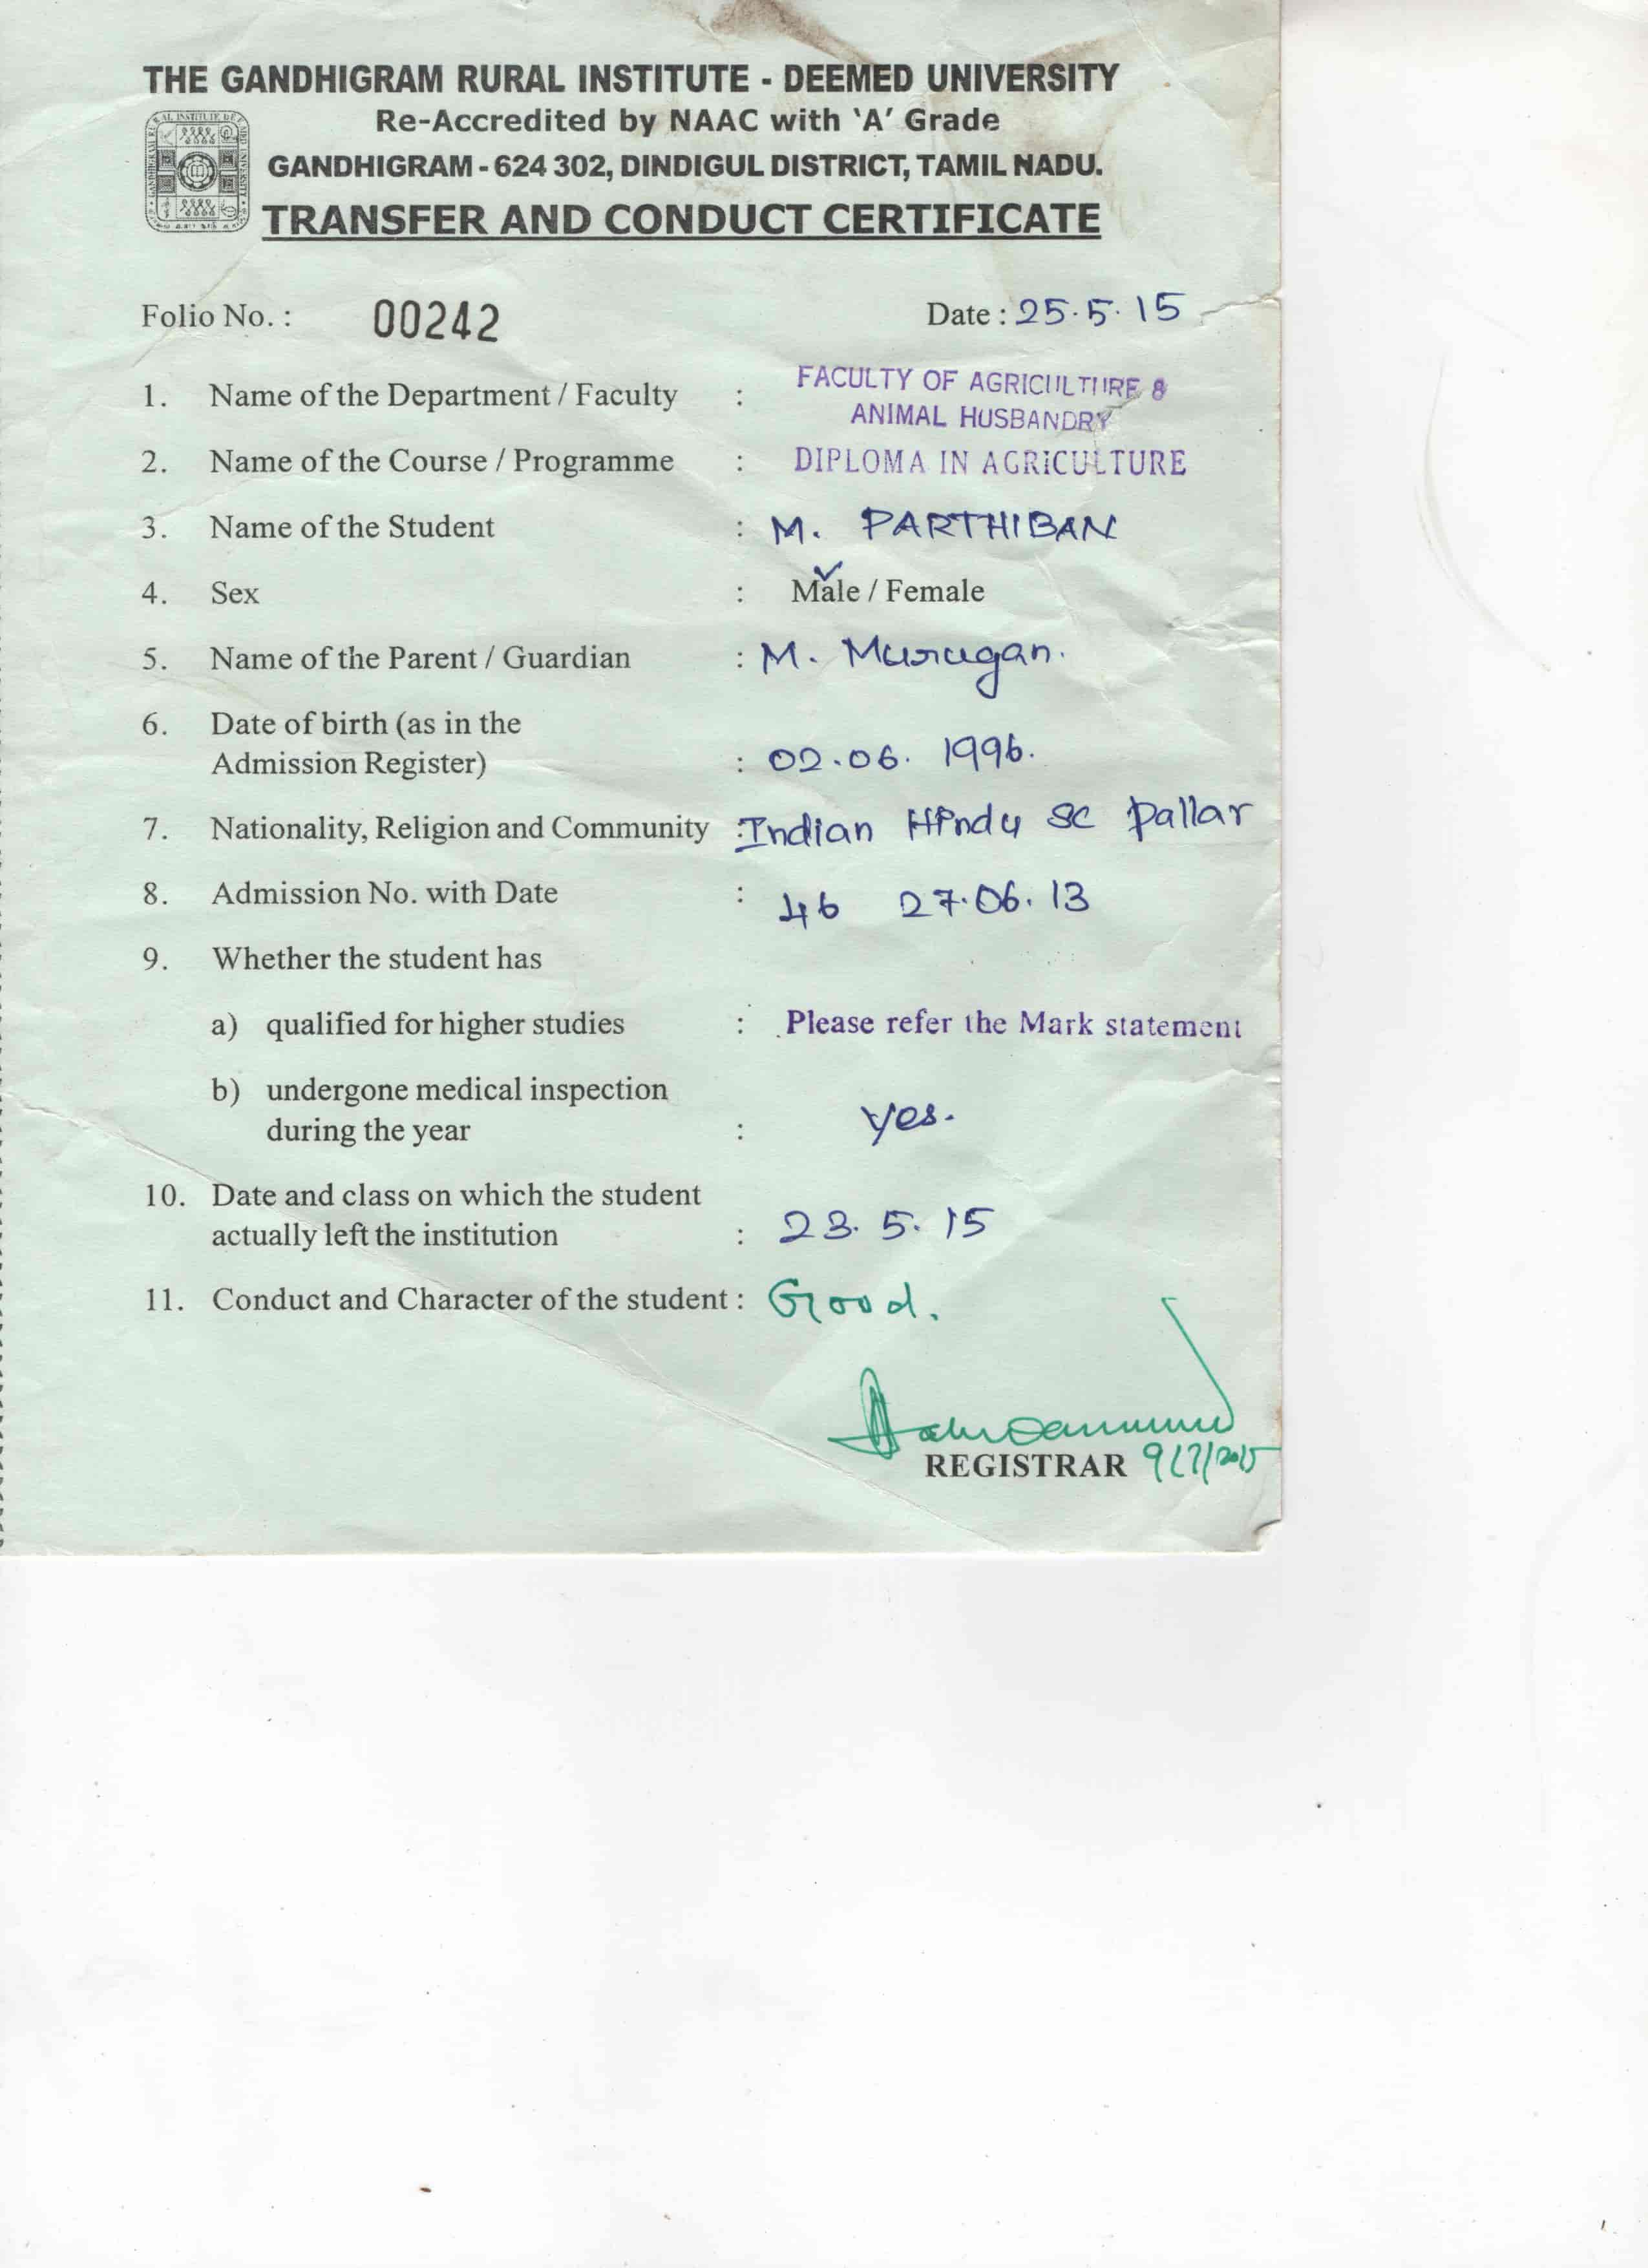 THE GANDHIGRAM RURAL INSTITUTE - DEEMED UNIVERSITY
Re-Accredited by NAAC with 'A' Grade
GANDHIGRAM - 624 302, DINDIGUL DISTRICT, TAMIL NADU.
TRANSFER AND CONDUCT CERTIFICATE
Folio No. : 00242 Date : 25.5.15
1. Name of the Department / Faculty : FACULTY OF AGRICULTURE &
ANIMAL HUSBANDRY
2. Name of the Course / Programme : DIPLOMA IN AGRICULTURE
3. Name of the Student : M. PARTHIBAN
4. Sex : Male / Female
5. Name of the Parent / Guardian : M. Murugan.
6. Date of birth (as in the
Admission Register) : 02.06. 1996.
7. Nationality, Religion and Community : Indian Hindu SC Pallar
8. Admission No. with Date : 46 27.06.13
9. Whether the student has
a) qualified for higher studies : Please refer the Mark statement
b) undergone medical inspection
during the year : Yes.
10. Date and class on which the student
actually left the institution : 23.5.15
11. Conduct and Character of the student : Good.
REGISTRAR 9/7/2015